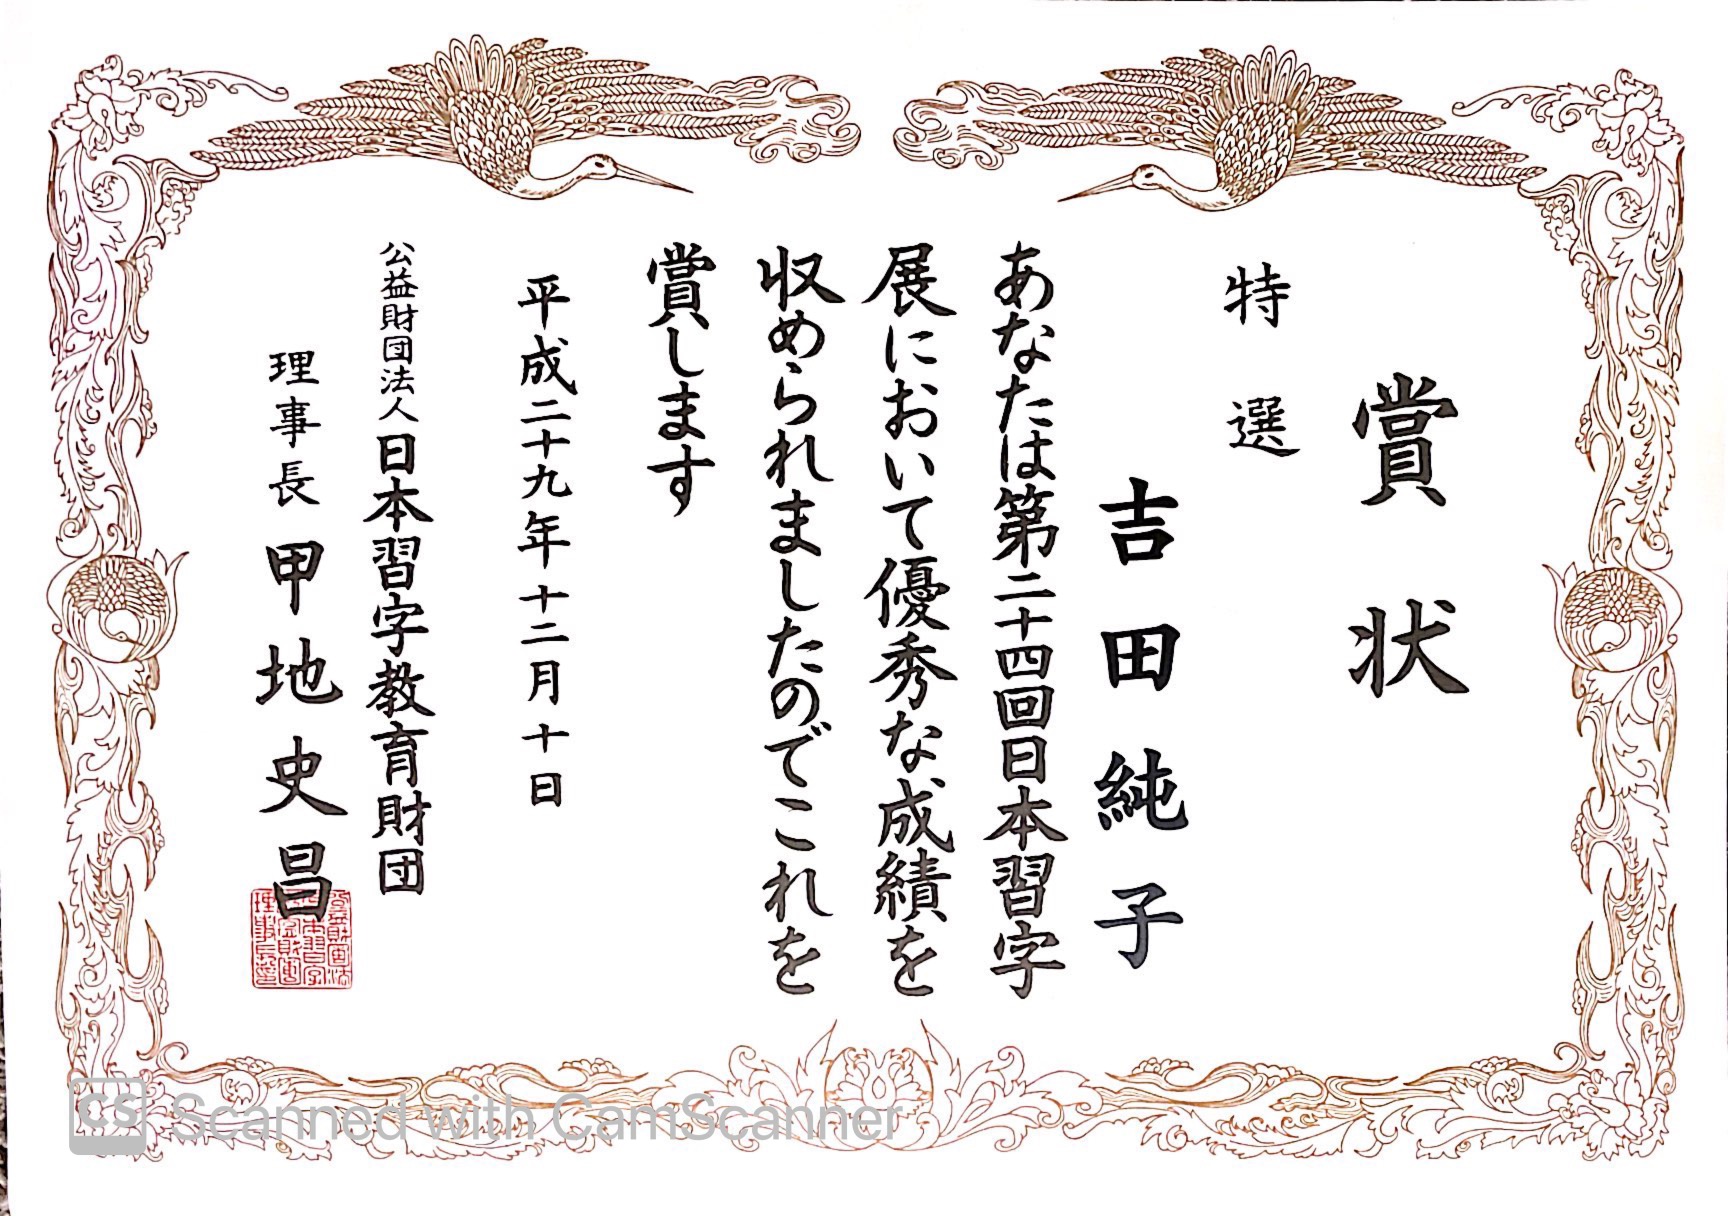 賞状
特選
吉田純子
あなたは第二十四回日本習字
展において優秀な成績を
収められましたのでこれを
賞します
平成二十九年十二月十日
公益財団法人日本習字教育財団
理事長 甲地史昌
CS Scanned with CamScanner